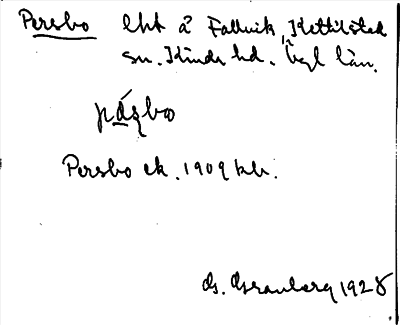 Persbo lht å Fallvik, Kettilstad
sn. Kinds hd. Ögl län.
pásbo
Persbo ek. 1909 kb.
G. Granberg 1928